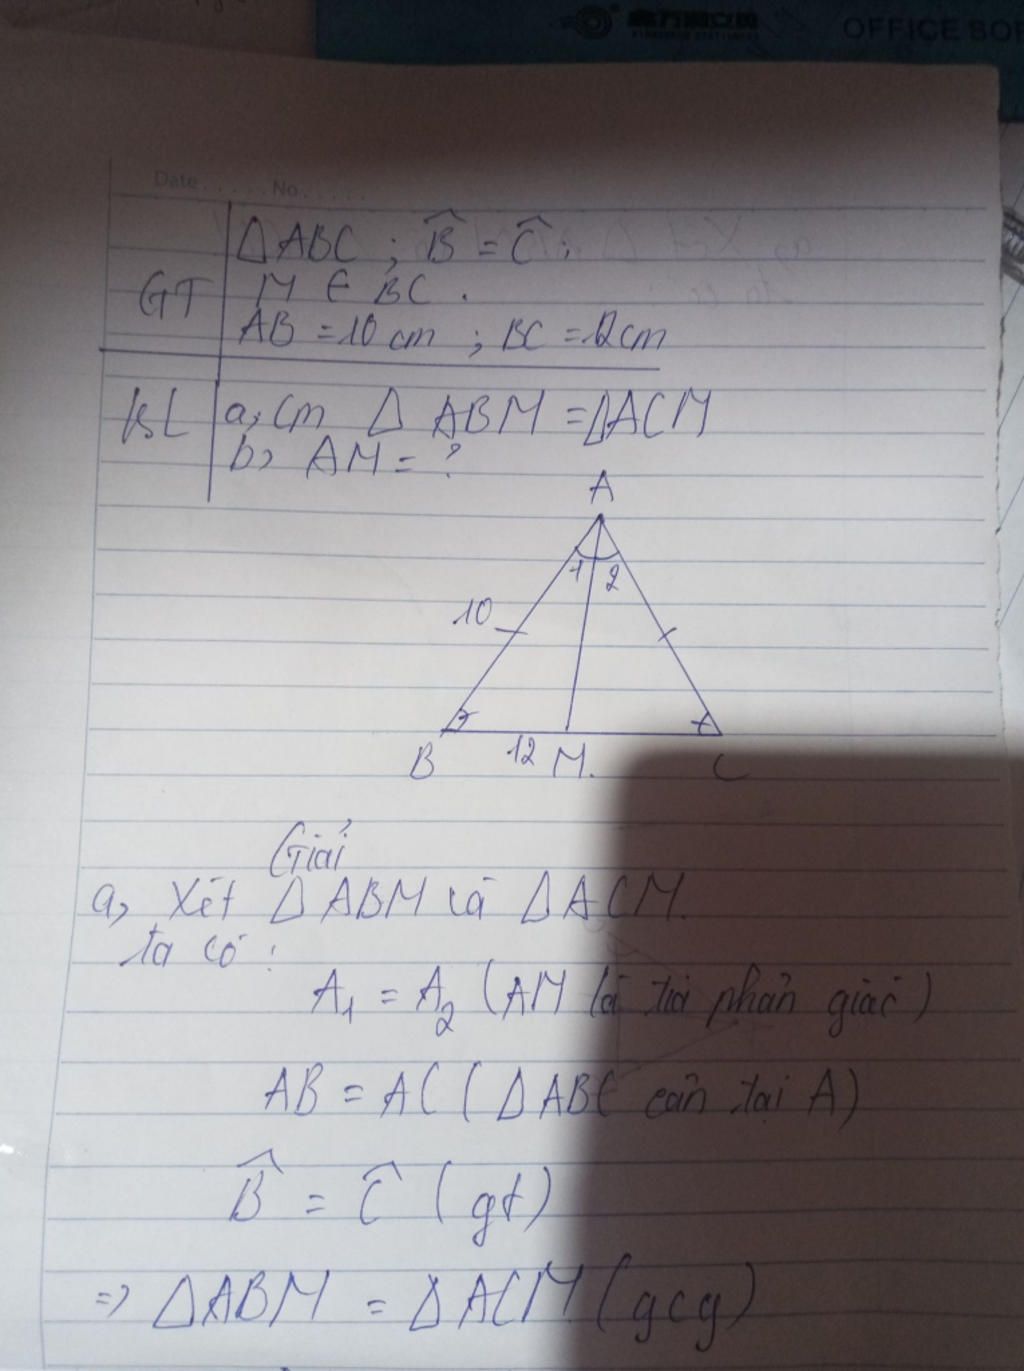 OFFICE SOF
Date . . . . . No . . . . .
ΔABC ; B̂ = Ĉ ;
GT M ∈ BC .
AB = 10 cm ; BC = 12cm
KL a, Cm Δ ABM = ΔACM
b, AM = ?
A
1 2
10
B 12 M. C
Giải
a, Xét Δ ABM và Δ ACM.
ta có :
A₁ = A₂ (AM là tia phân giác)
AB = AC ( Δ ABC cân tại A)
B̂ = Ĉ ( gt)
=> ΔABM = Δ ACM (gcg)